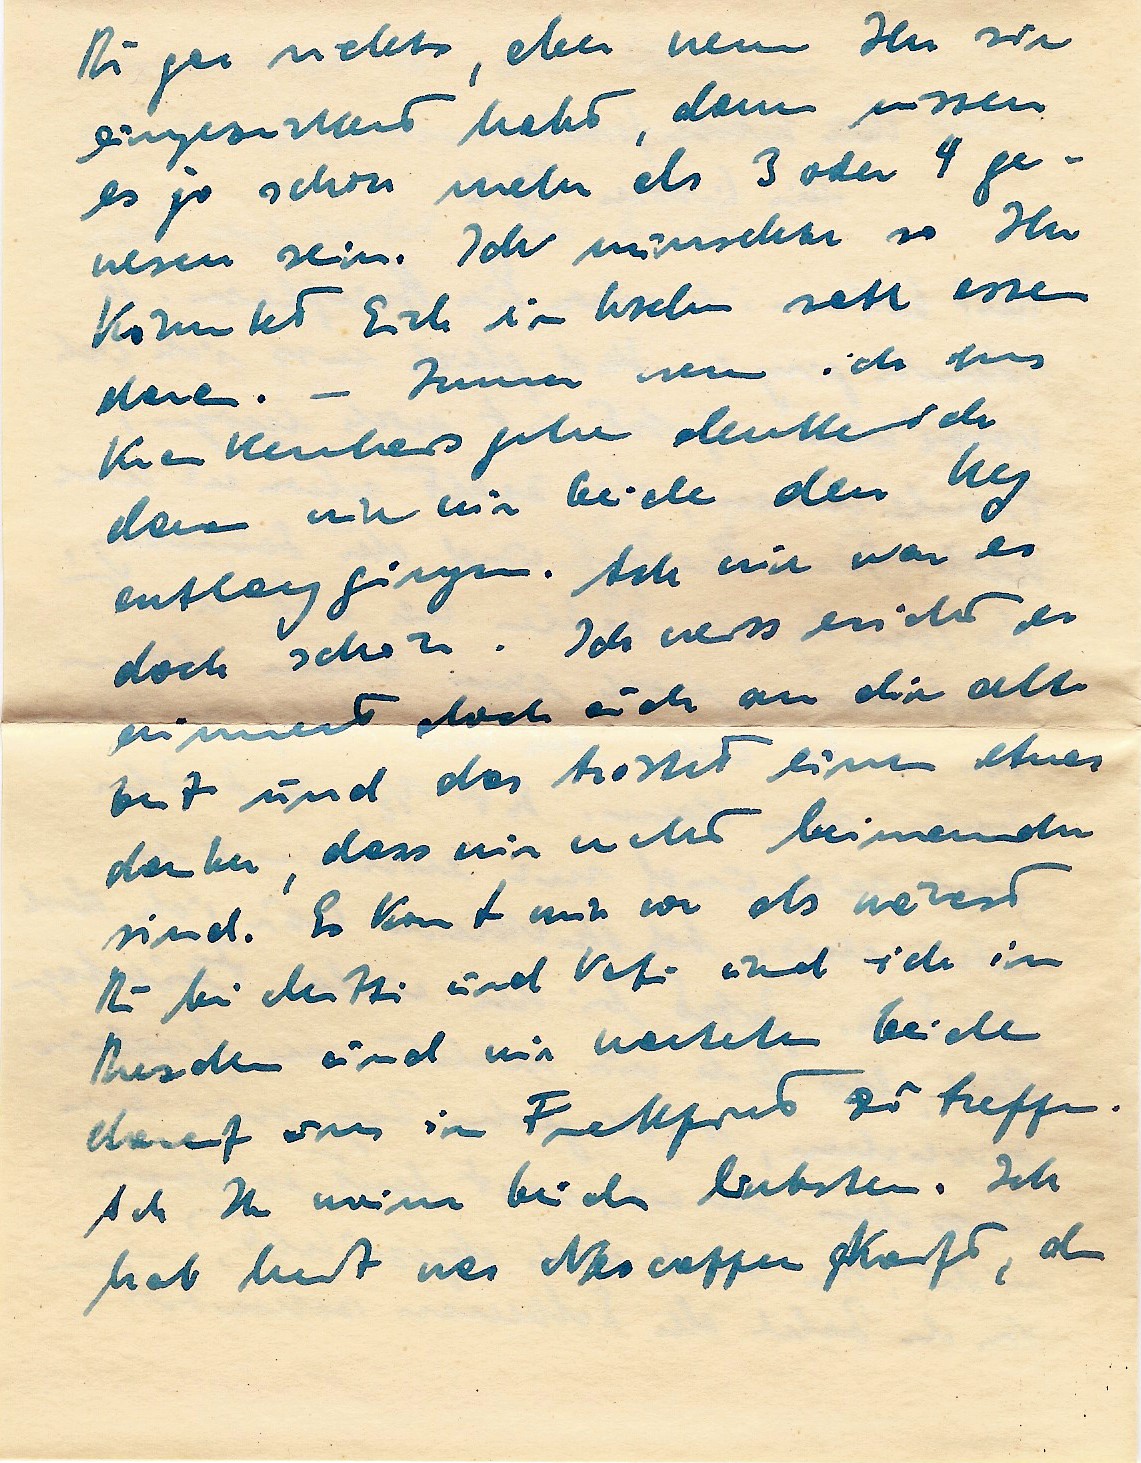 Du gar nichts, aber wenn Ihr sie
eingesückert habt, dann müssen
es ja schon mehr als 3 oder 4 ge-
wesen sein. Ich wünschte so Ihr
könntet Euch ein bischen satt essen
daran. — Immer wenn ich ins
Krankenhaus gehe denke ich
daran wie wir beide den Weg
entlang gingen. Ach wie war es
doch schön. Ich weiss nicht es
erinnert doch auch an die alte
Zeit und das tröstet einen etwas
darüber, dass wir nicht beieinander
sind. Es kommt mir vor als wärest
Du bei Mutti und Vati und ich in
Dresden und wir warteten beide
darauf uns in Frankfurt zu treffen.
Ach Ihr meine beiden liebsten. Ich
hab heut was Nescaffee gekauft, den